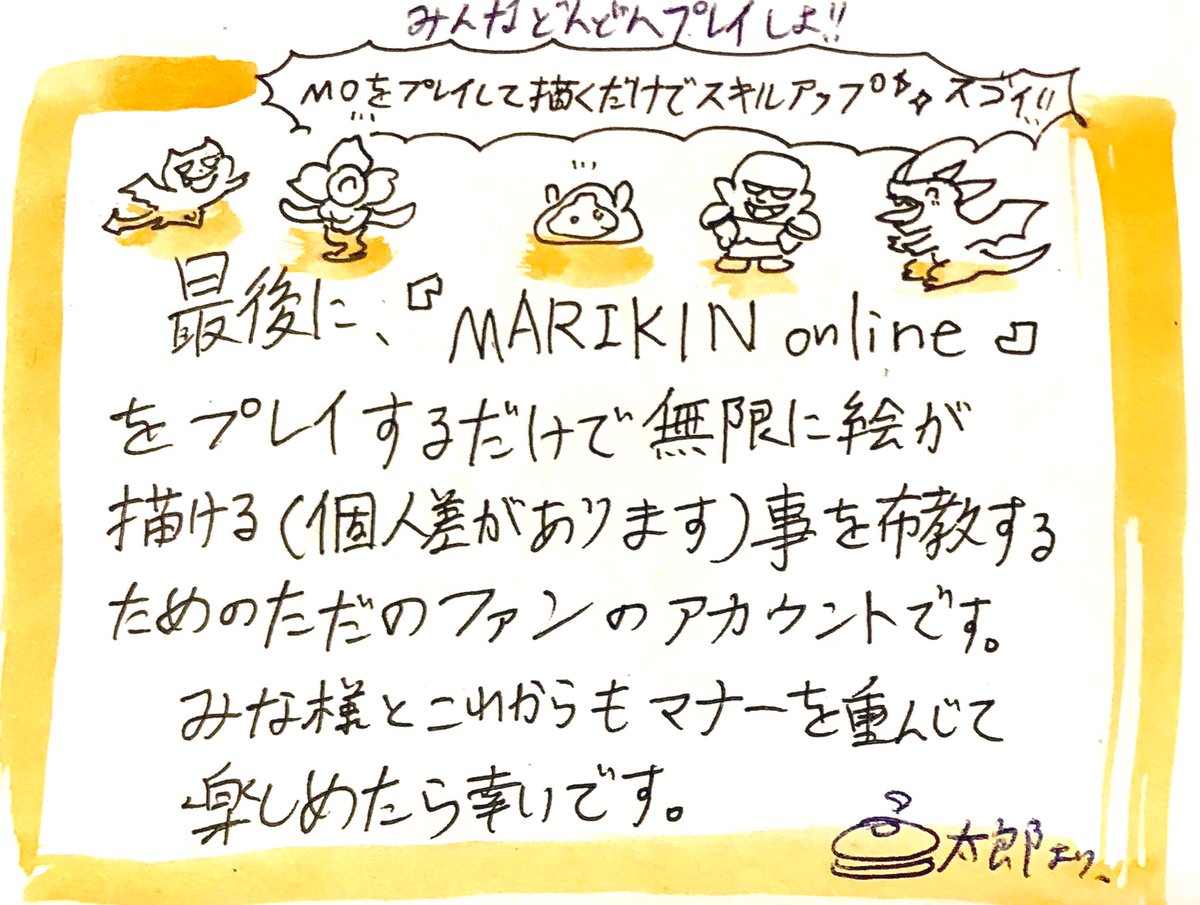 みんなどんどんプレイしよ!!
MOをプレイして描くだけでスキルアップ スゴイ!!
最後に、『MARIKIN online』
をプレイするだけで無限に絵が
描ける(個人差があります)事を布教する
ためのただのファンのアカウントです。
みな様とこれからもマナーを重んじて
楽しめたら幸いです。
太郎より